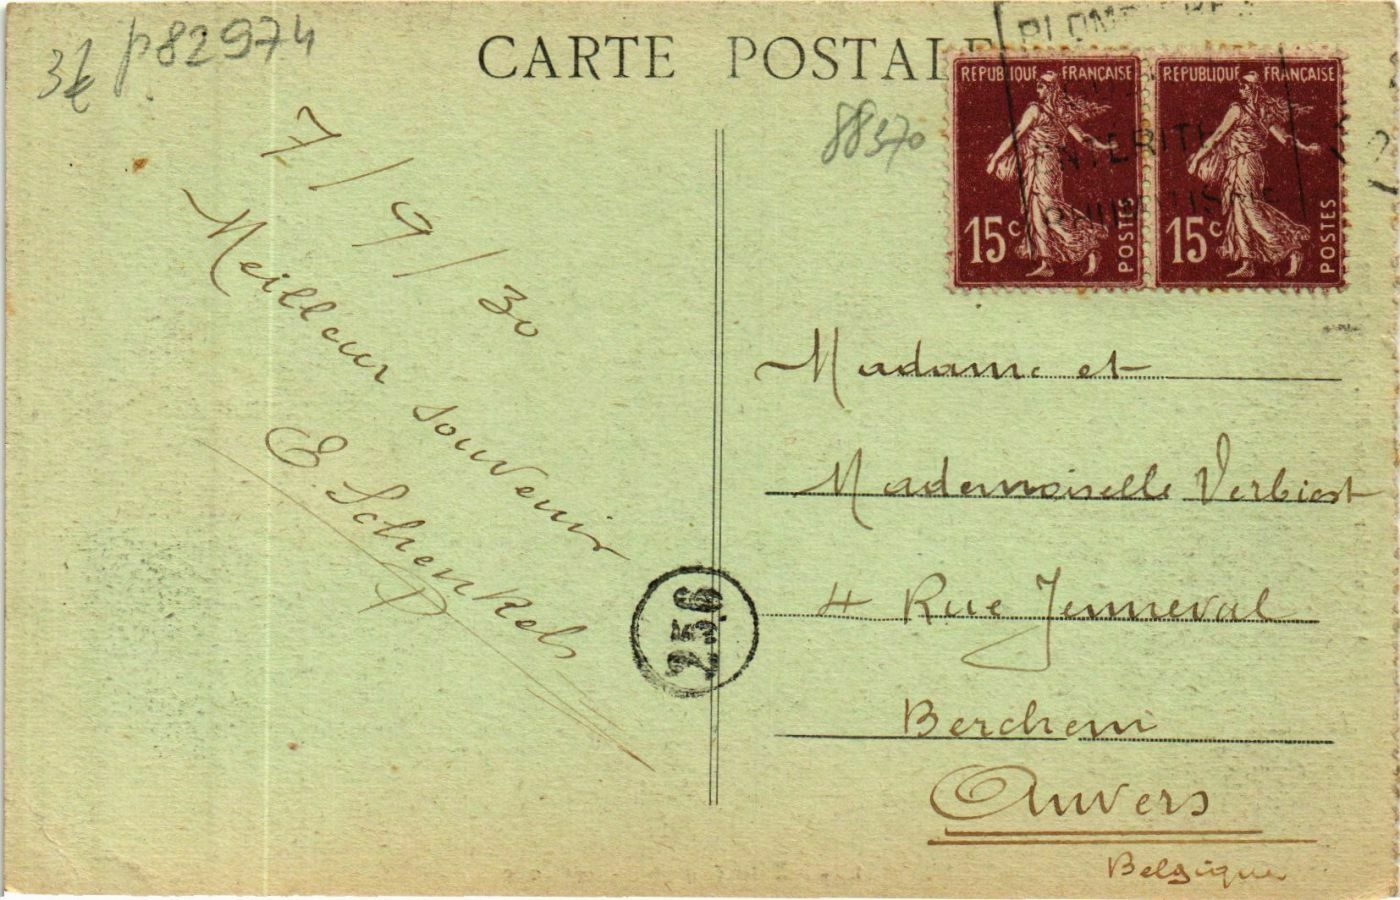 3€ p82974
CARTE POSTALE
88370
REPUBLIQUE FRANÇAISE
15c
POSTES
REPUBLIQUE FRANÇAISE
15c
POSTES
ENTÉRITE
7/9/30
Meilleur souvenir
E. Schenkels
256
Madame et
Mademoiselle Verbiest
4 Rue Jenneval
Berchem
Anvers
Belgique